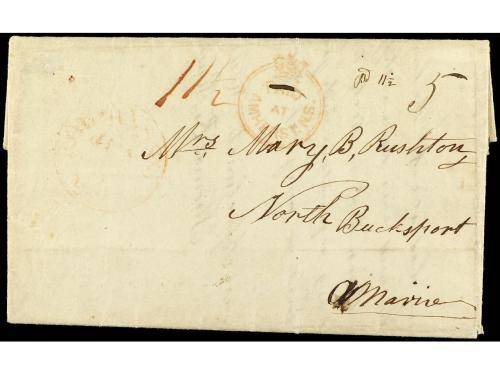 11½
Pd 11½
5
Mrs. Mary, B, Rushton
North Bucksport
Maine